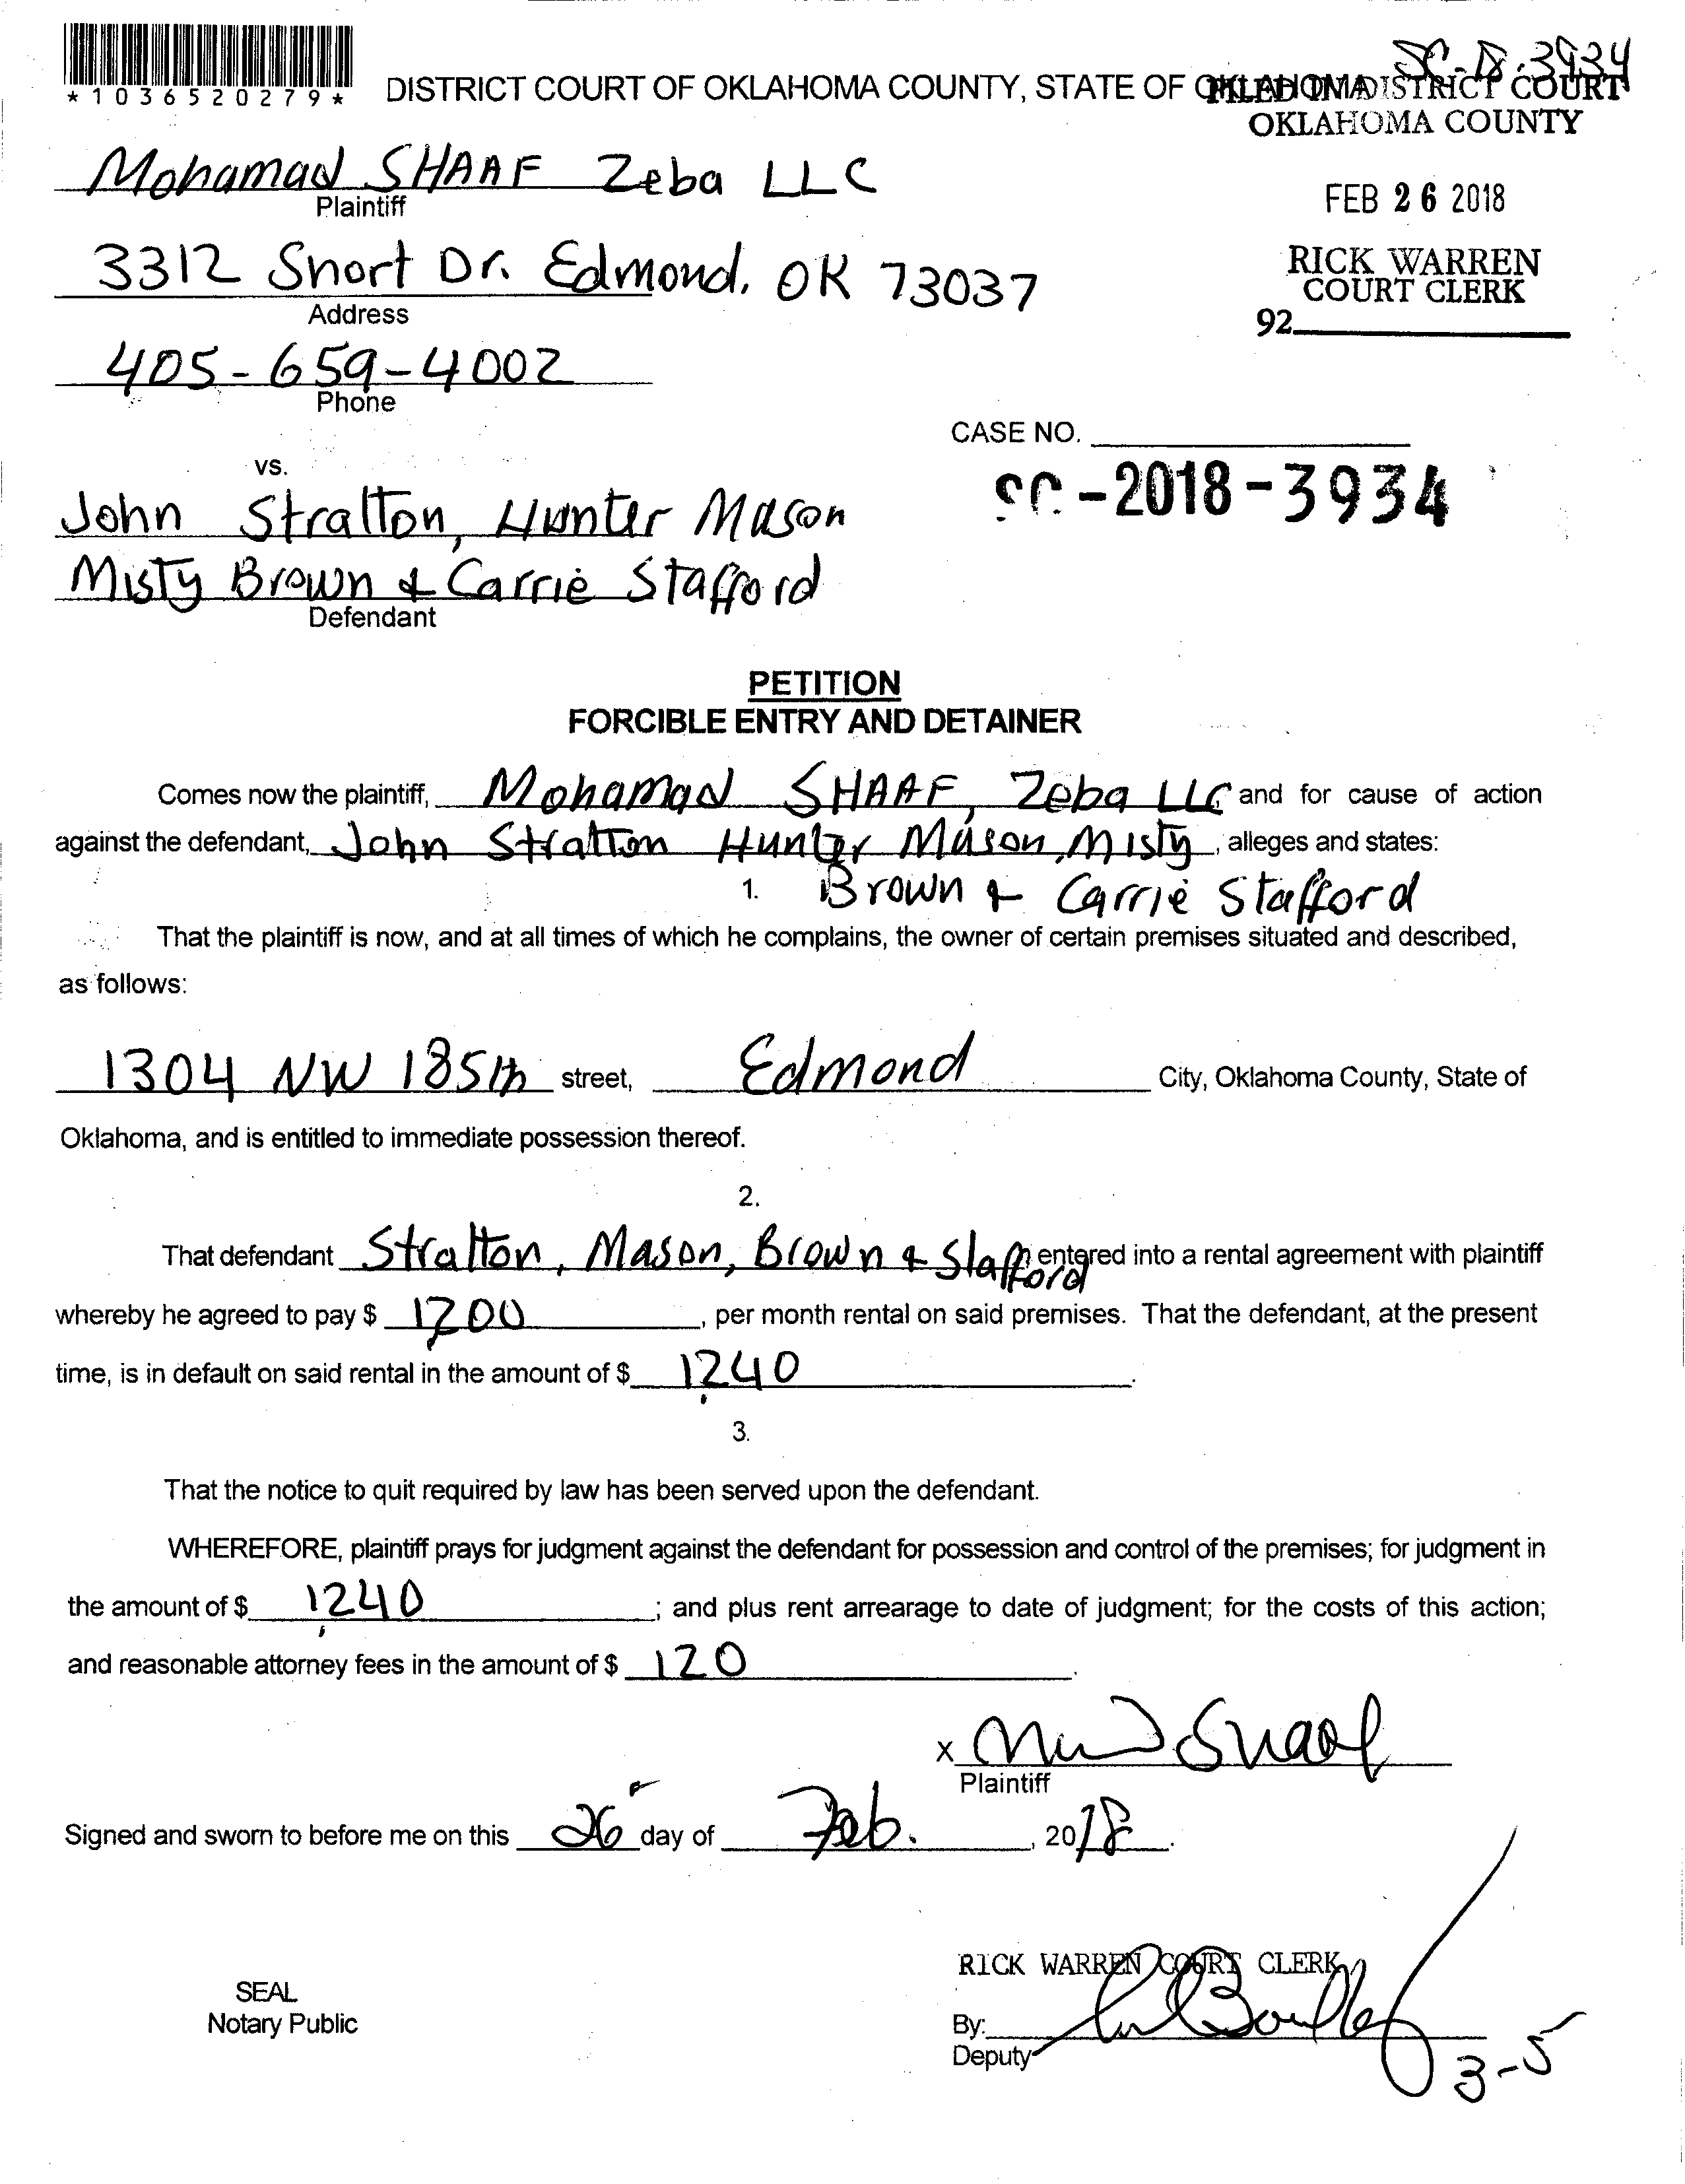 SC-18-3934
*1036520279*
DISTRICT COURT OF OKLAHOMA COUNTY, STATE OF OKLAHOMA
FILED IN DISTRICT COURT
OKLAHOMA COUNTY
Mohamad SHAAF Zeba LLC
Plaintiff
FEB 26 2018
3312 Short Dr. Edmond, OK 73037
Address
RICK WARREN
COURT CLERK
92
405-659-4002
Phone
CASE NO.
vs.
SC-2018-3934
John Stratton, Hunter Mason
Misty Brown & Carrie Stafford
Defendant
PETITION
FORCIBLE ENTRY AND DETAINER
Comes now the plaintiff, Mohamad SHAAF, Zeba LLC, and for cause of action
against the defendant, John Stratton Hunter Mason, Misty, alleges and states:
1. Brown & Carrie Stafford
That the plaintiff is now, and at all times of which he complains, the owner of certain premises situated and described,
as follows:
1304 NW 185th street, Edmond City, Oklahoma County, State of
Oklahoma, and is entitled to immediate possession thereof.
2.
That defendant Stratton, Mason, Brown & Stafford entered into a rental agreement with plaintiff
whereby he agreed to pay $ 1200, per month rental on said premises. That the defendant, at the present
time, is in default on said rental in the amount of $ 1240.
3.
That the notice to quit required by law has been served upon the defendant.
WHEREFORE, plaintiff prays for judgment against the defendant for possession and control of the premises; for judgment in
the amount of $ 1240; and plus rent arrearage to date of judgment; for the costs of this action;
and reasonable attorney fees in the amount of $ 120.
x Shaaf
Plaintiff
Signed and sworn to before me on this 26 day of Feb., 2018.
RICK WARREN COURT CLERK
SEAL
Notary Public
By:
Deputy
3-5